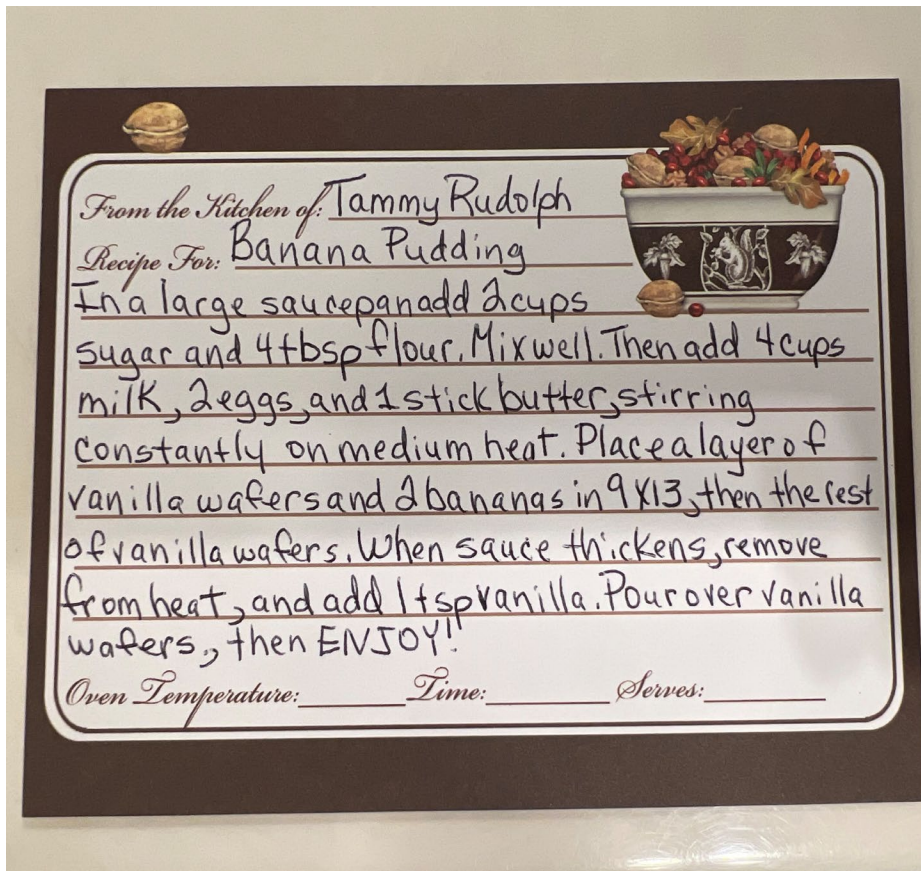 From the Kitchen of: Tammy Rudolph
Recipe For: Banana Pudding
In a large saucepan add 2 cups
sugar and 4 tbsp flour. Mix well. Then add 4 cups
milk, 2 eggs, and 1 stick butter, stirring
constantly on medium heat. Place a layer of
vanilla wafers and 2 bananas in 9X13, then the rest
of vanilla wafers. When sauce thickens, remove
from heat, and add 1 tsp vanilla. Pour over vanilla
wafers., then ENJOY!
Oven Temperature: Time: Serves: